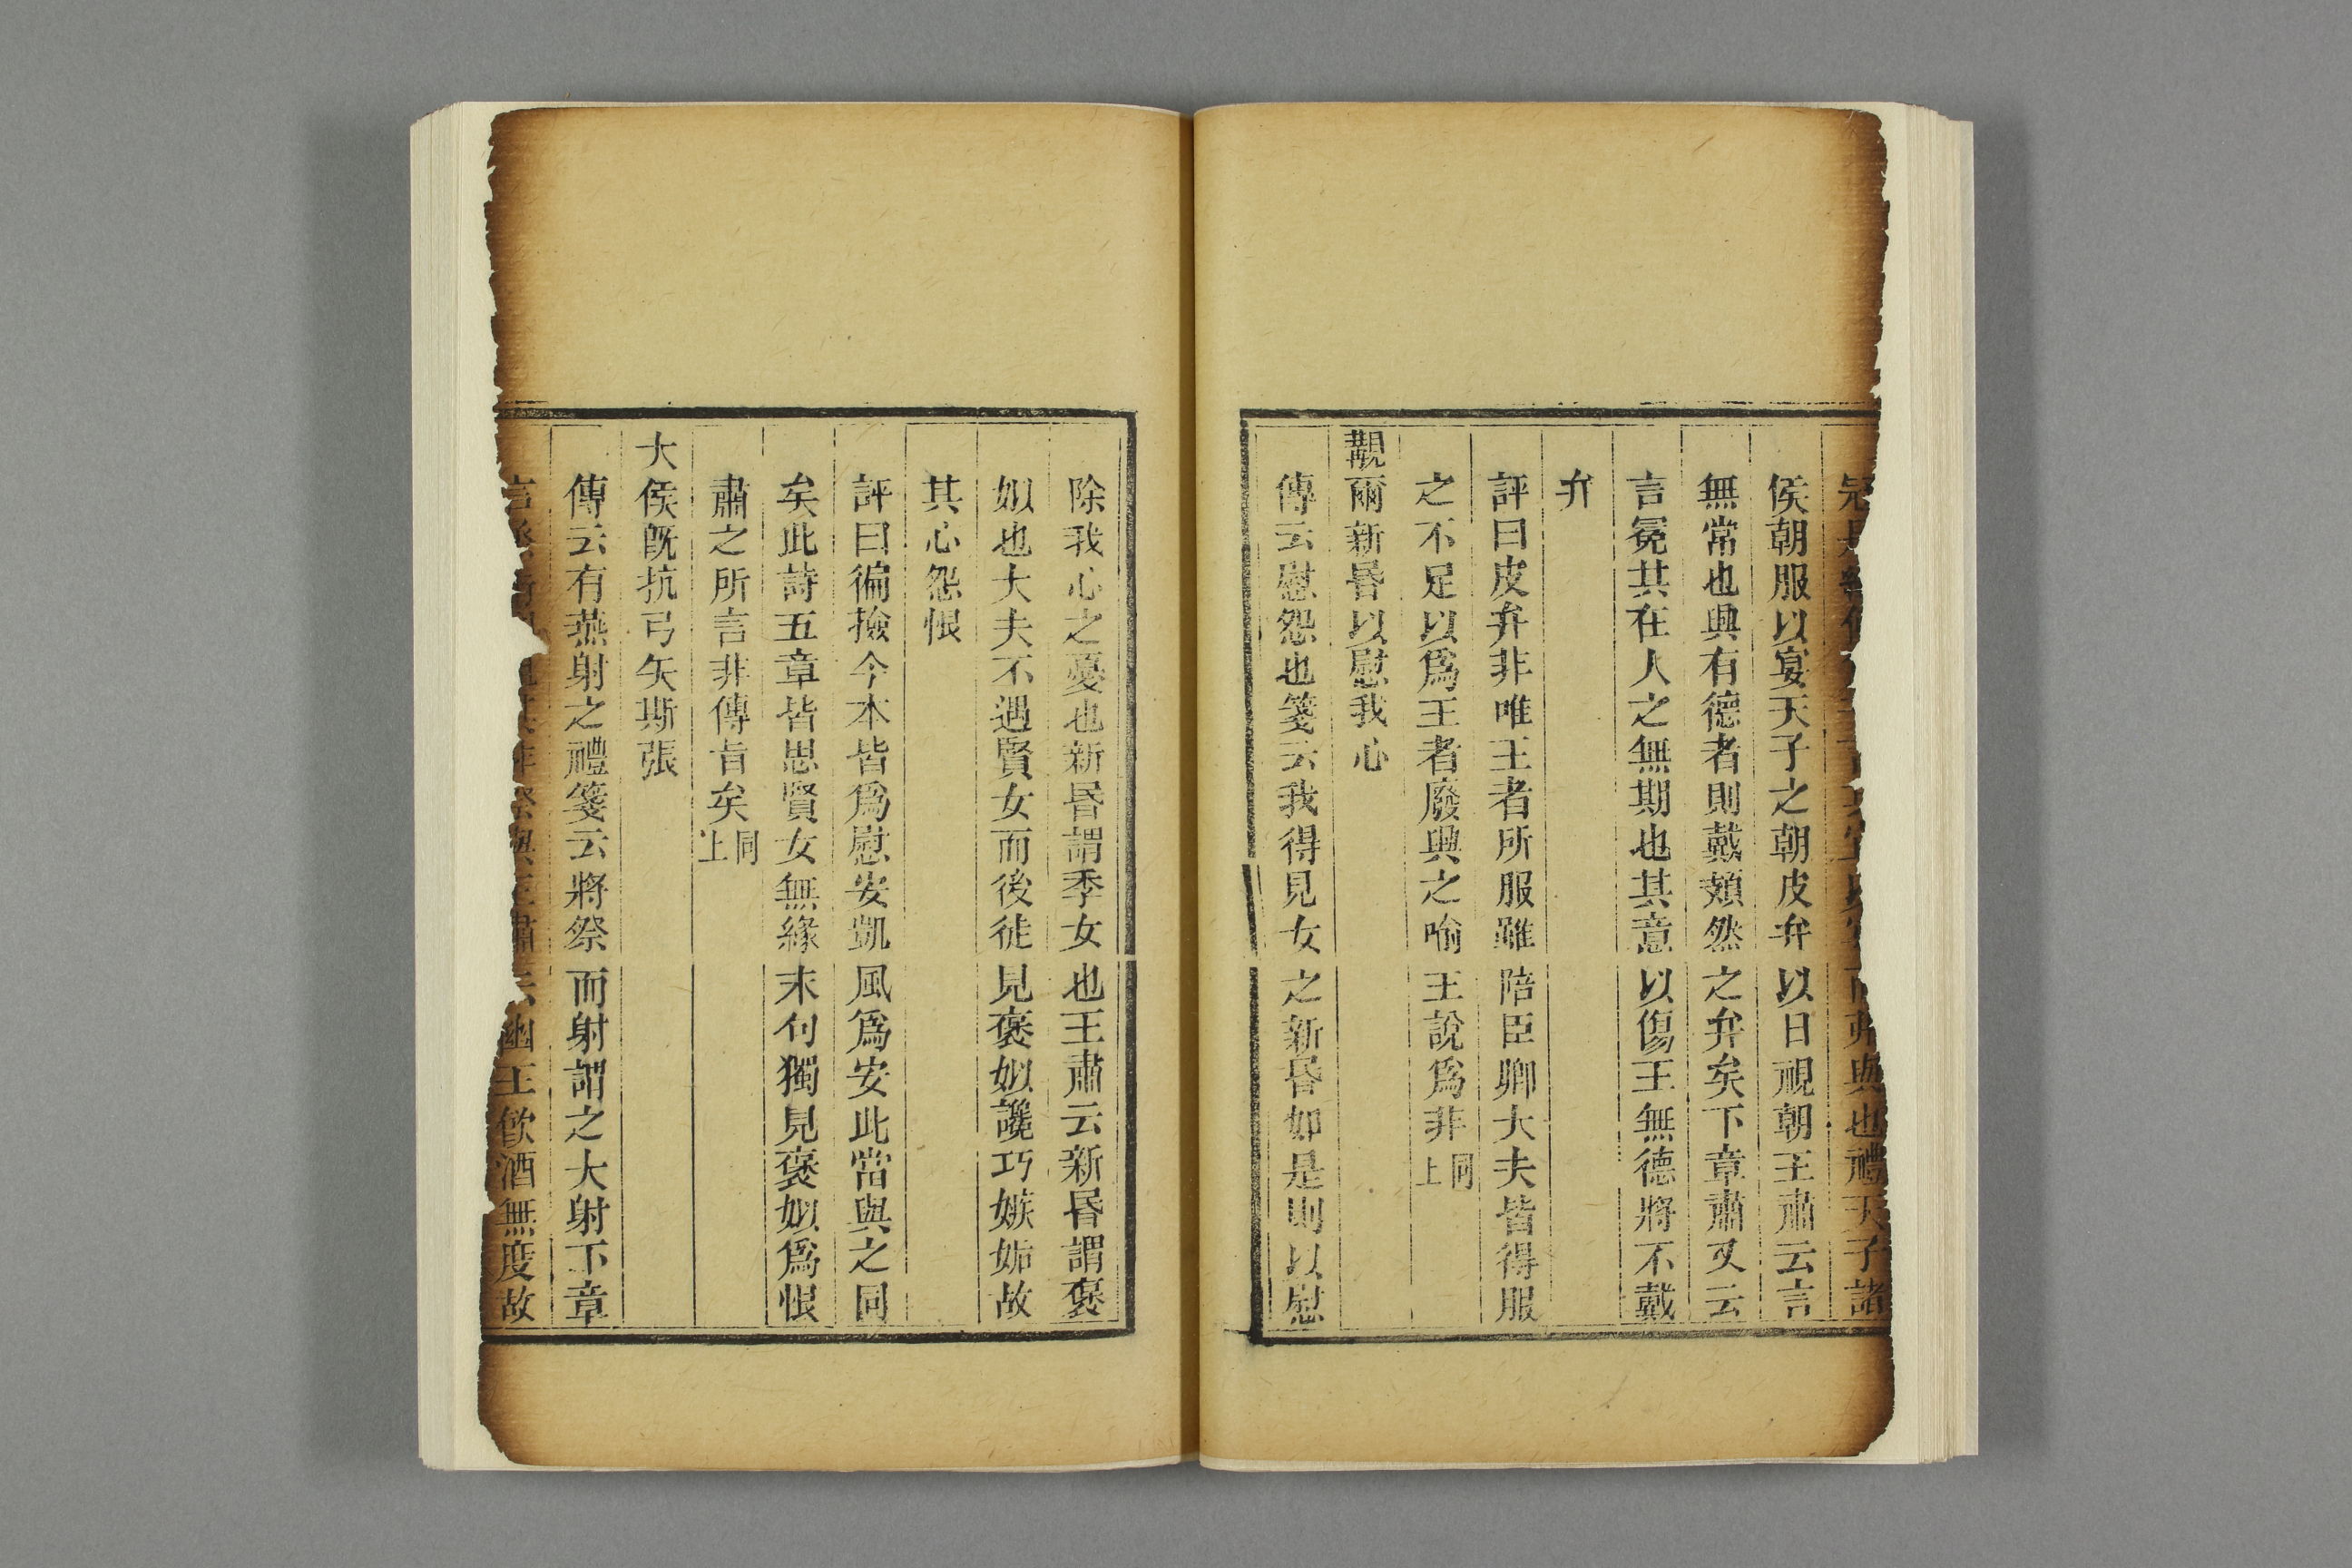 弁與也禮天子諸
侯朝服以宴天子之朝皮弁以日視朝王肅云言
無常也興有德者則戴頍然之弁矣下章肅又云
言冕其在人之無期也其意以傷王無德將不戴
弁
評曰皮弁非唯王者所服雖陪臣卿大夫皆得服
之不足以爲王者廢興之喻王說爲非同上
覯爾新昏以慰我心
傳云慰怨也箋云我得見女之新昏如是則以慰
除我心之憂也新昏謂季女也王肅云新昏謂褒
姒也大夫不遇賢女而後徒見褒姒讒巧嫉妬故
其心怨恨
評曰徧撿今本皆爲慰安凱風爲安此當與之同
矣此詩五章皆思賢女無緣末句獨見褒姒爲恨
肅之所言非傳旨矣同上
大侯旣抗弓矢斯張
傳云有燕射之禮箋云將祭而射謂之大射下章
言烝其非祭與王肅云幽王飮酒無度故